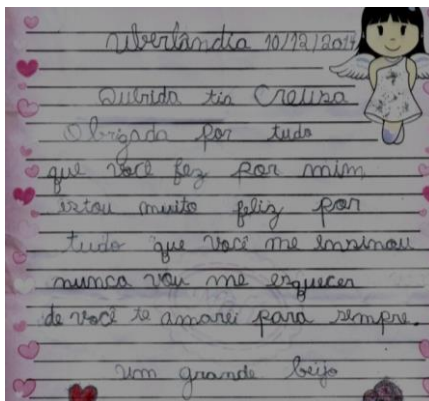 Uberlândia 10/12/2014
Querida tia Creusa
Obrigada por tudo
que você fez por mim
estou muito feliz por
tudo que você me insinou
nunca vou me esquecer
de você te amarei para sempre.
um grande beijo